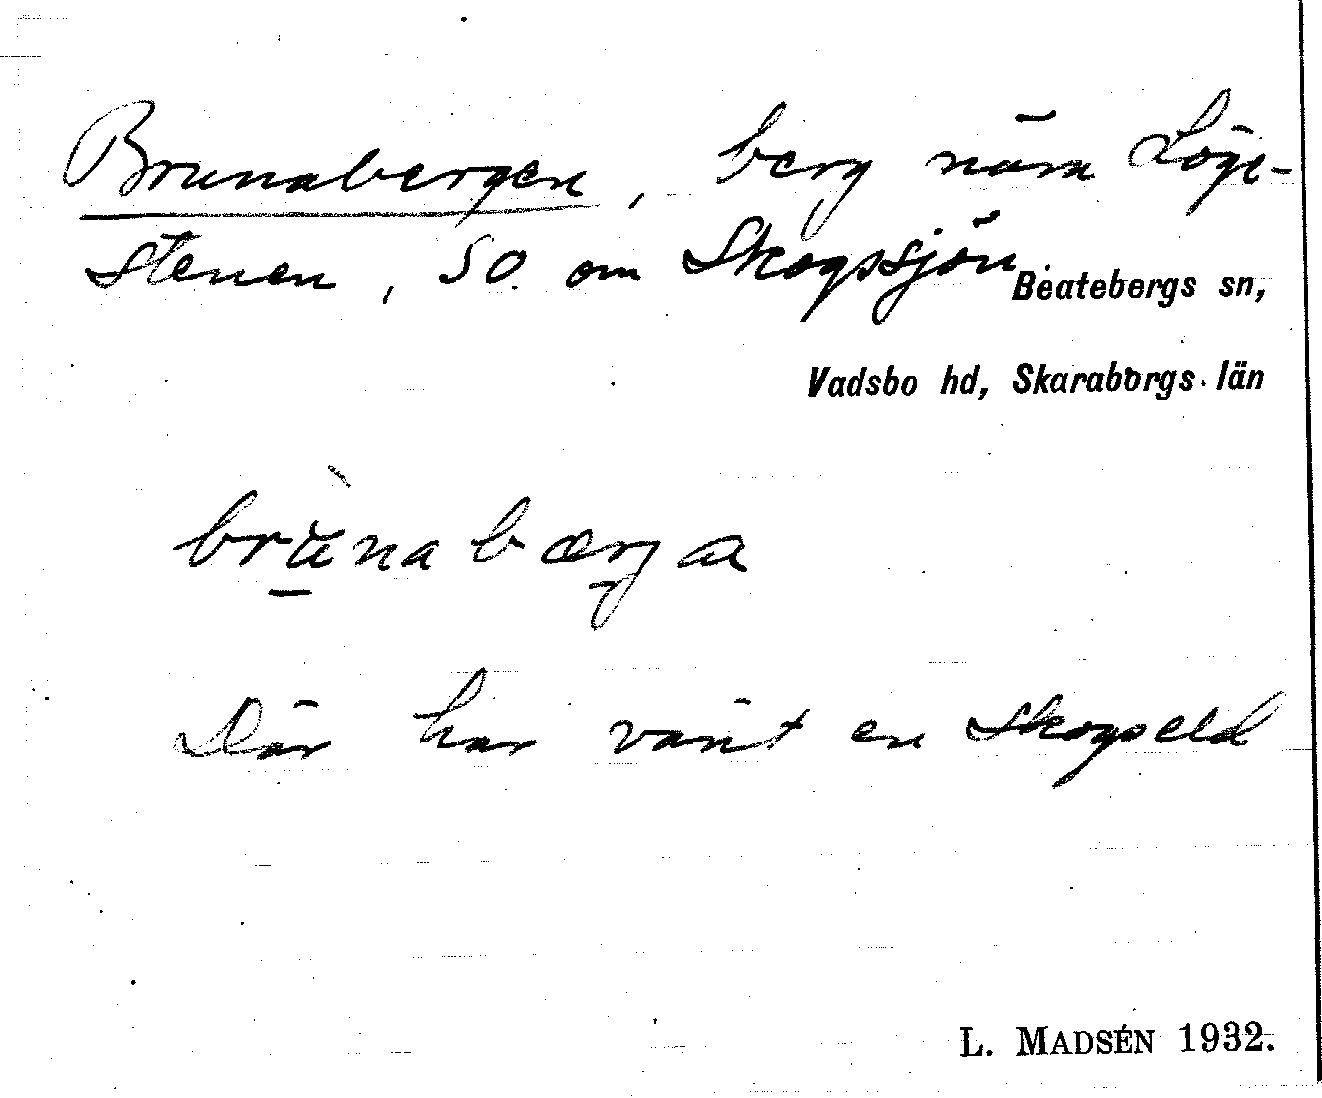 Brunabergen, berg nära Löge-
stenen, SO. om Skogssjön
Beatebergs sn,
Vadsbo hd, Skaraborgs län
brùnabærga
Där har varit en skogseld
L. MADSÉN 1932.